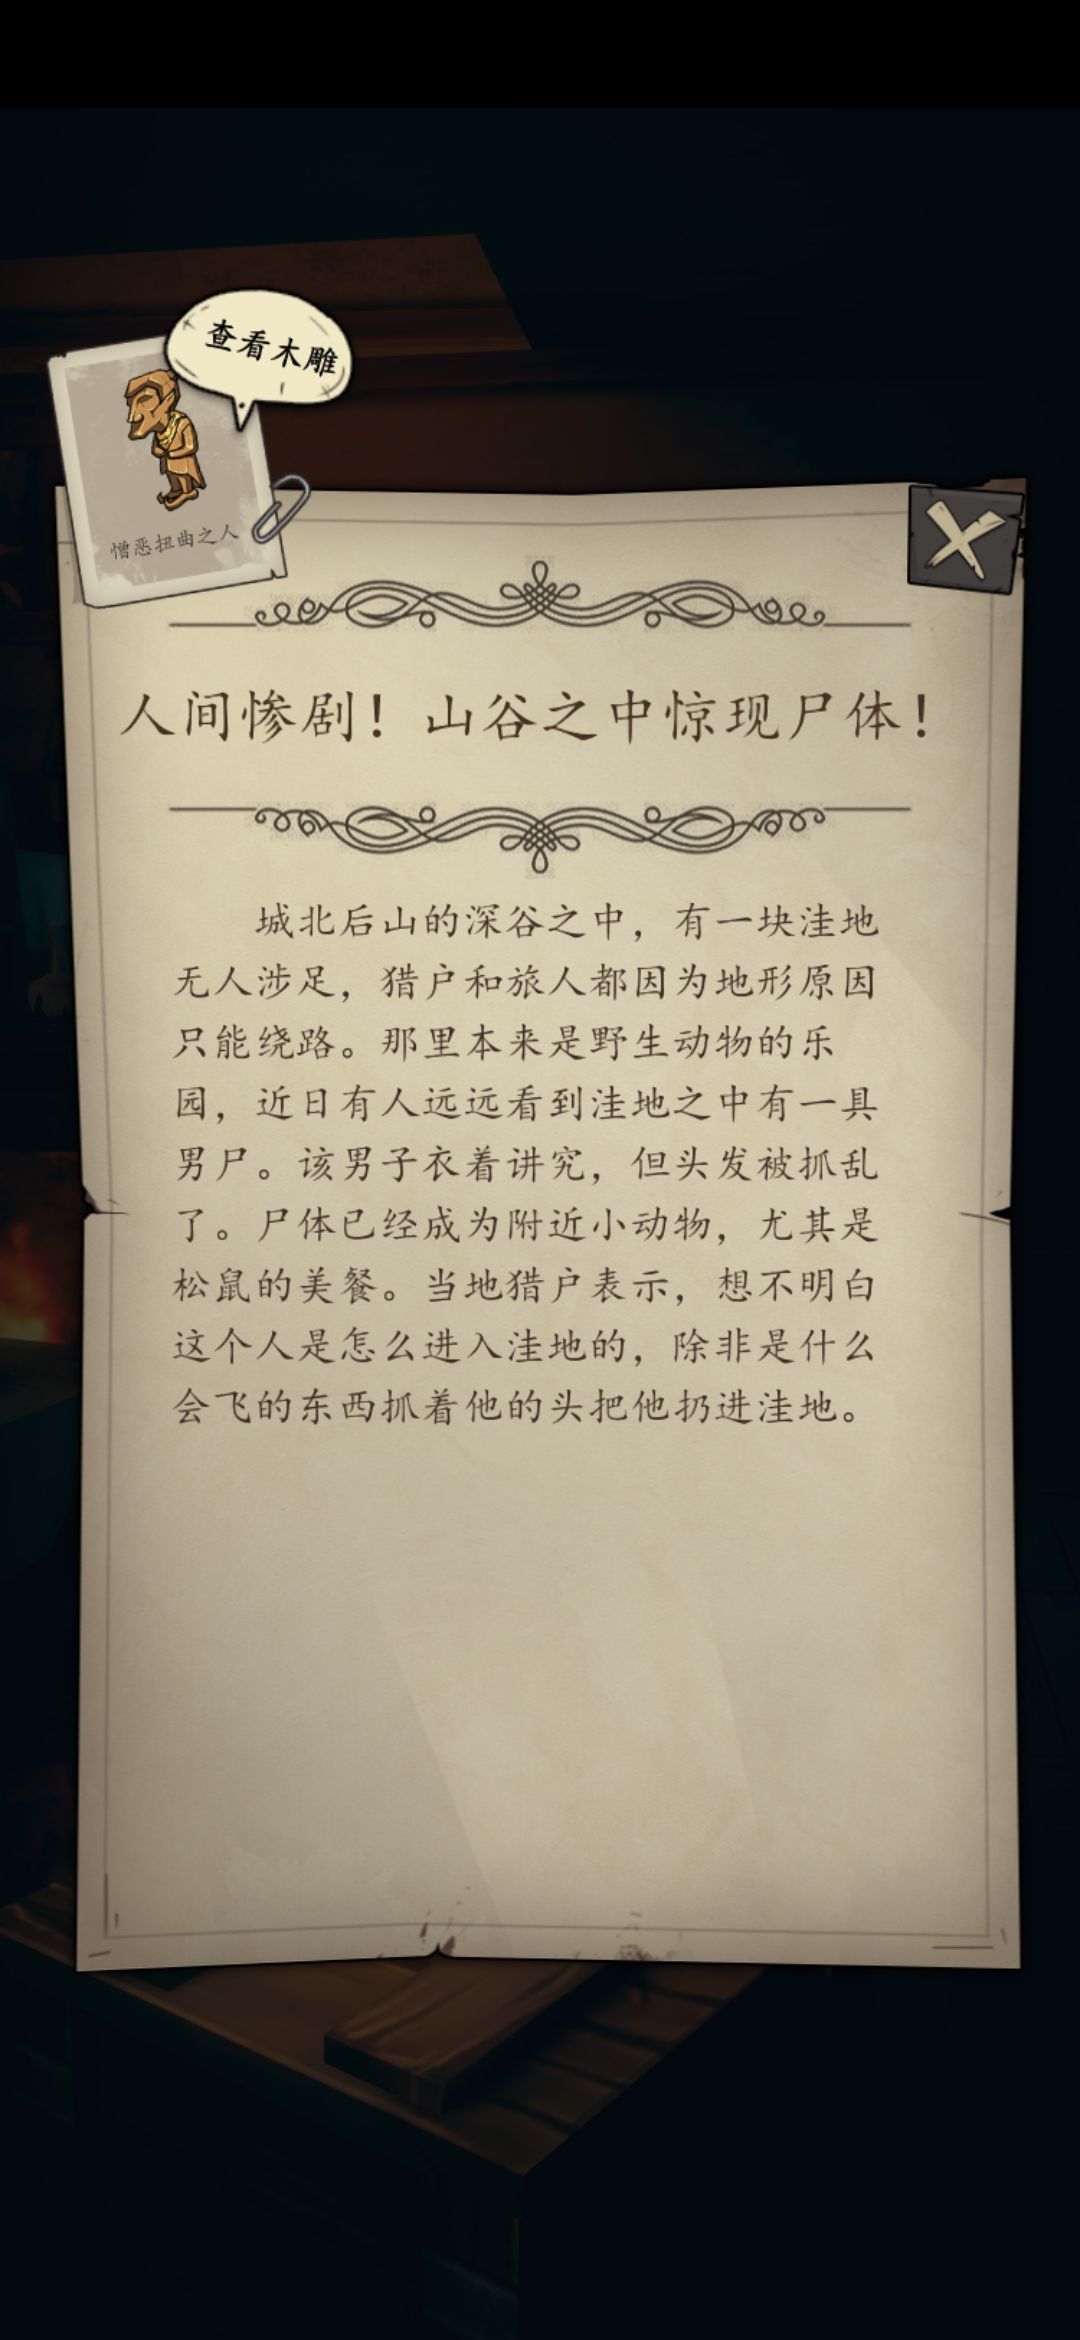 查看木雕
憎恶扭曲之人
人间惨剧！山谷之中惊现尸体！
城北后山的深谷之中，有一块洼地
无人涉足，猎户和旅人都因为地形原因
只能绕路。那里本来是野生动物的乐
园，近日有人远远看到洼地之中有一具
男尸。该男子衣着讲究，但头发被抓乱
了。尸体已经成为附近小动物，尤其是
松鼠的美餐。当地猎户表示，想不明白
这个人是怎么进入洼地的，除非是什么
会飞的东西抓着他的头把他扔进洼地。